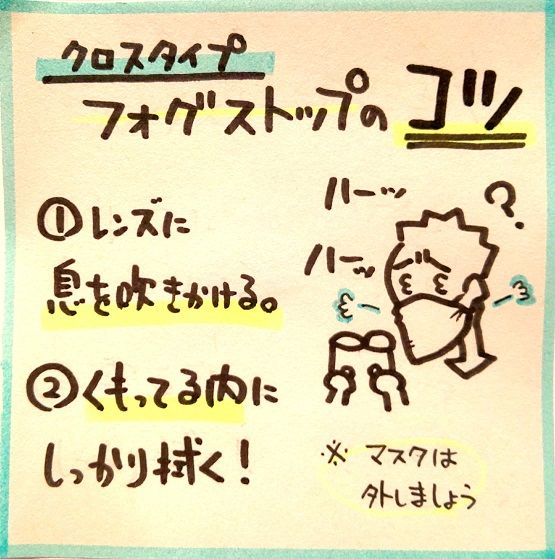 クロスタイプ
フォグストップのコツ
①レンズに
息を吹きかける。
②くもってる内に
しっかり拭く！
ハーッ
ハーッ
?
※マスクは
外しましょう